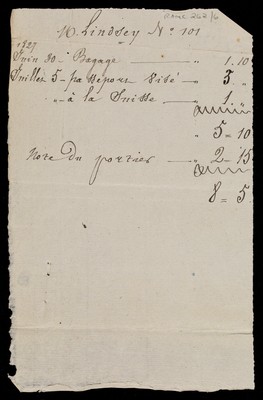 M. Lindsey No 101
1829
Juin 30 - Bagage — " 1.10
Juillet 5 - passeport visé — " 3 "
" - à la Suisse — " 1 "
" 5 = 10
Note du portier — " 2 = 15
8 = 5